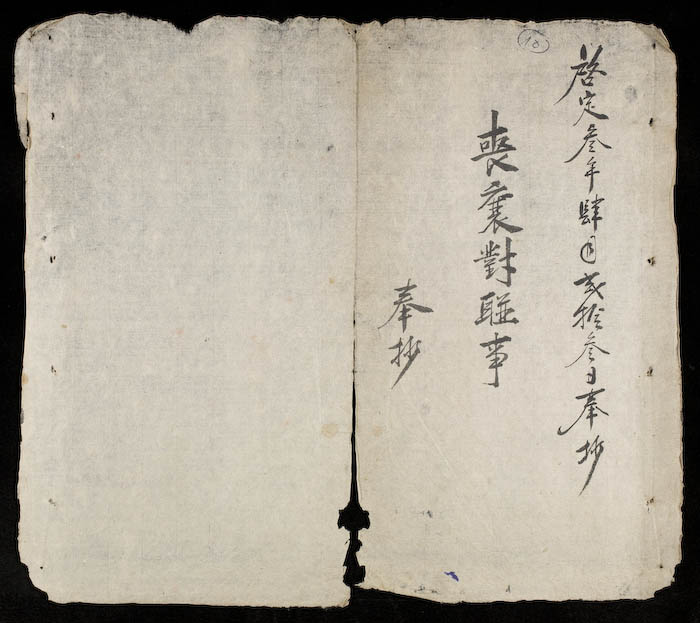 啓定叄年肆月貳拾叄日奉抄
喪襄對聯事
奉抄
18